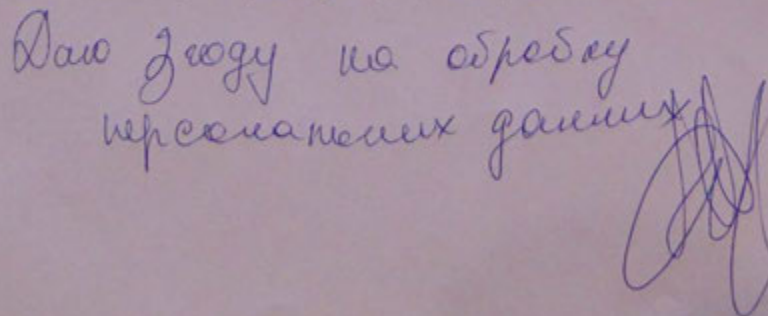 Даю згоду на обробку
персональних данних